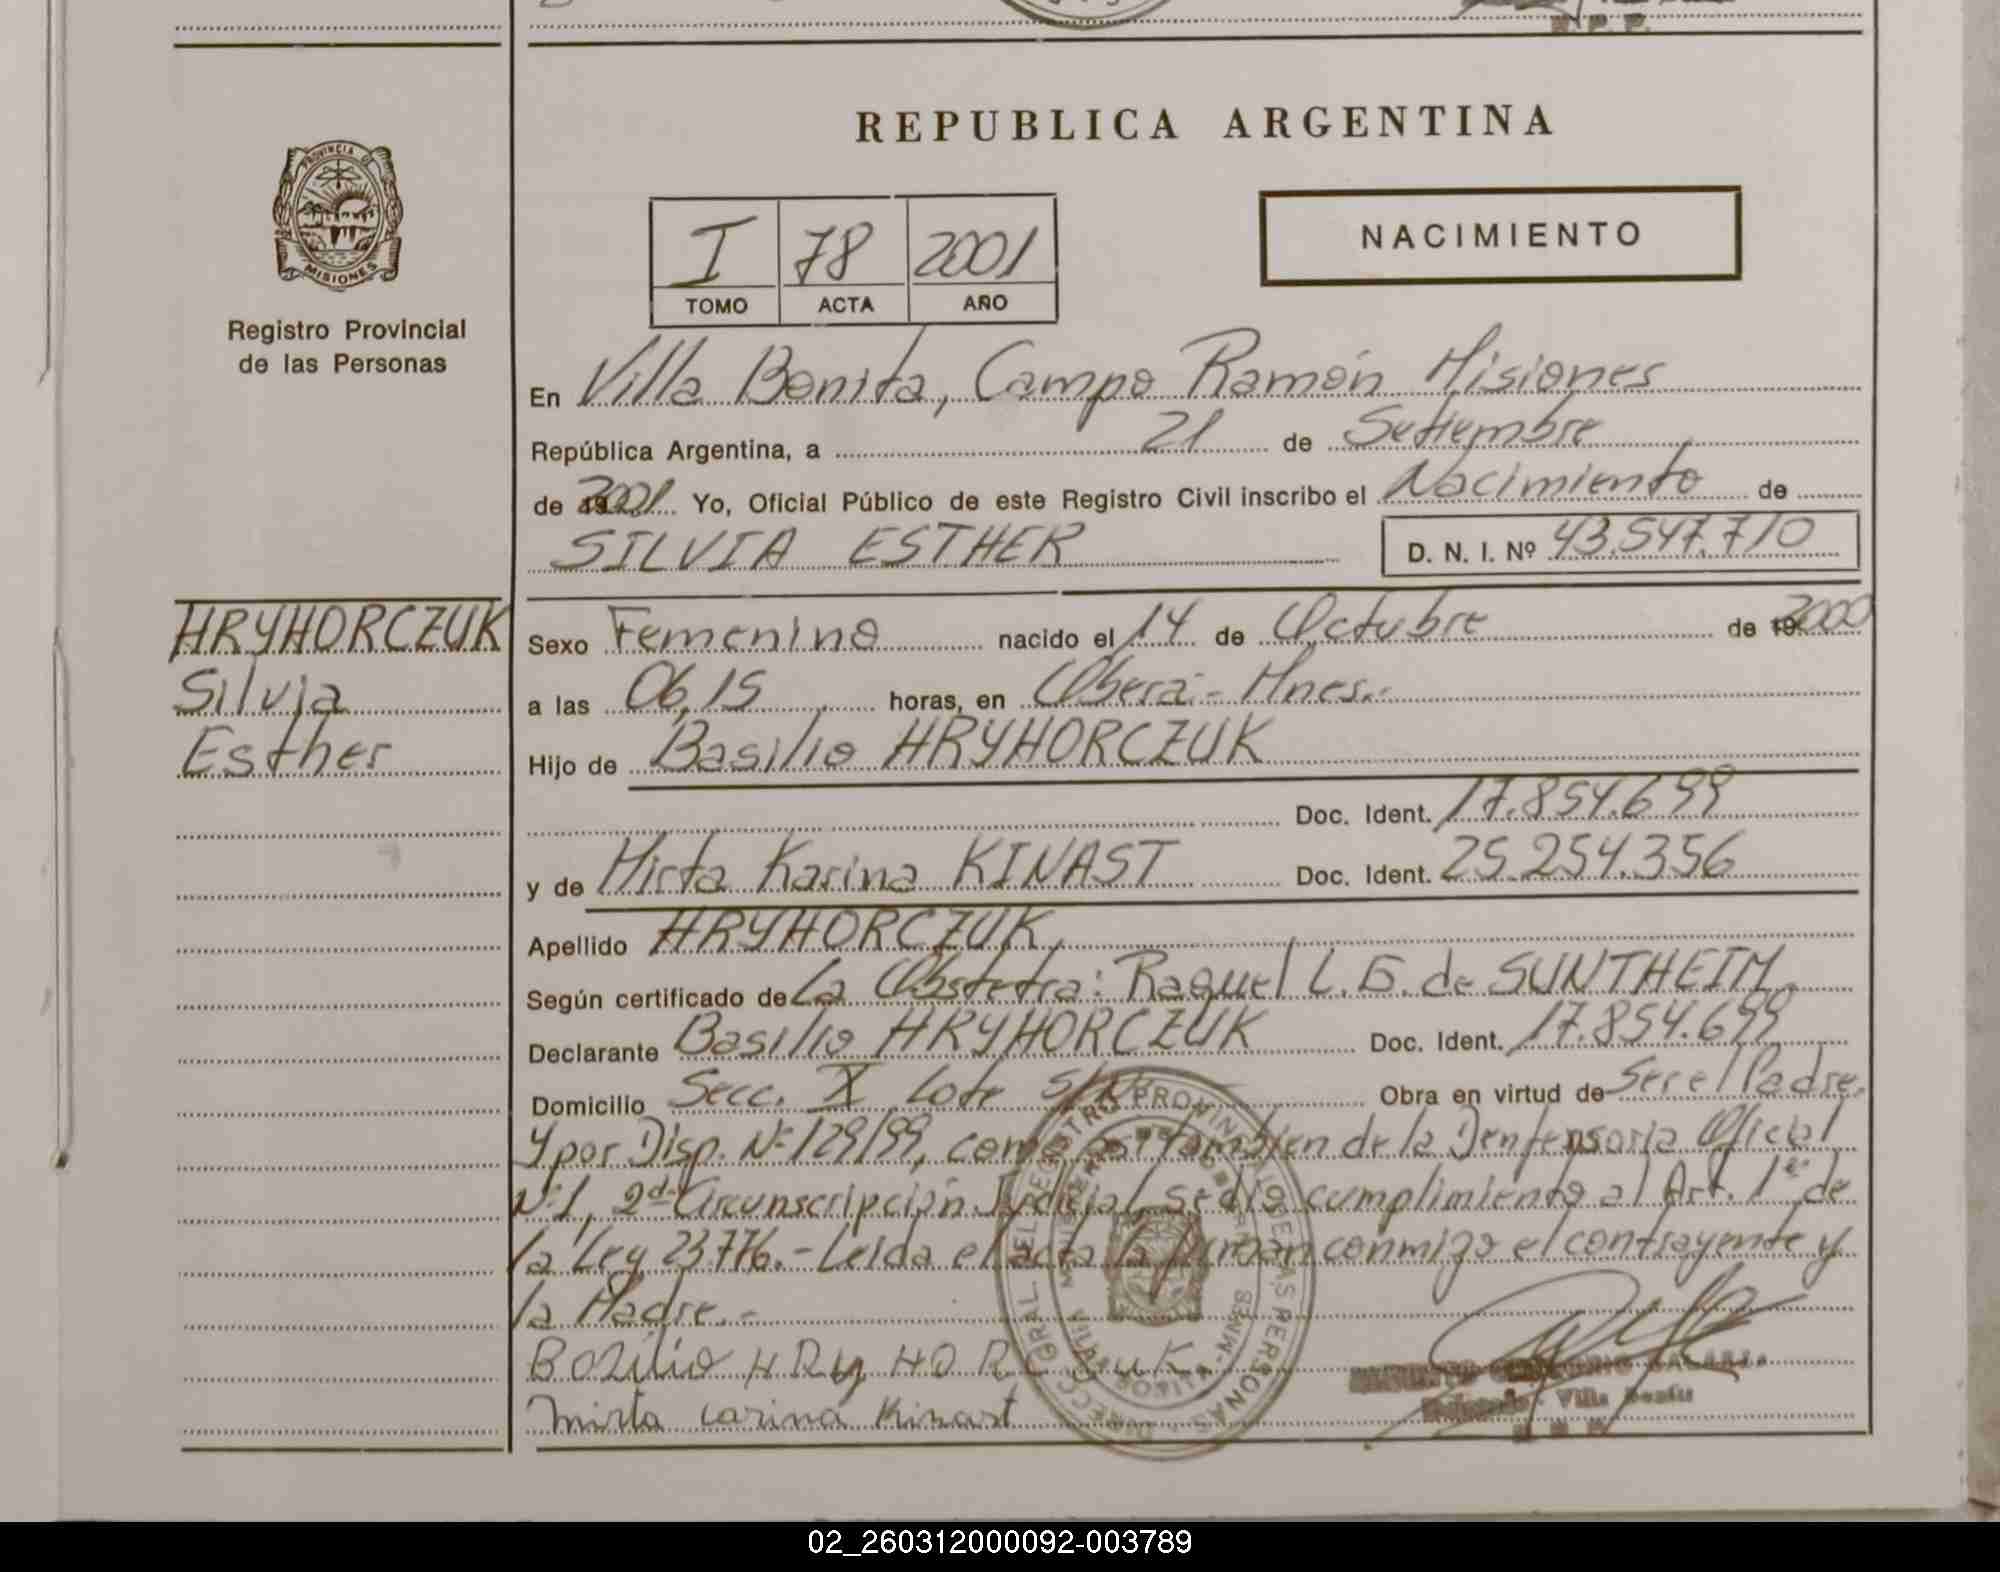 REPUBLICA ARGENTINA
PROVINCIA DE
MISIONES
Registro Provincial
de las Personas
I 78 2001
TOMO ACTA AÑO
NACIMIENTO
En Villa Bonita, Campo Ramón Misiones
República Argentina, a 21 de Settembre
de 2001 Yo, Oficial Público de este Registro Civil inscribo el Nacimiento de
SILVIA ESTHER D. N. I. Nº 43.547.710
HRYHORCZUK
Silvia
Esther
Sexo Femenino nacido el 14 de Octubre de 2000
a las 06,15 horas, en Oberá - Mnes.-
Hijo de Basilio HRYHORCZUK
Doc. Ident. 17.854.699
y de Mirta Karina KINAST Doc. Ident. 25.254.356
Apellido HRYHORCZUK
Según certificado de La Obstetra: Raquel L. G. de SUNTHEIM
Declarante Basilio HRYHORCZUK Doc. Ident. 17.854.699
Domicilio Secc. X Lote S/N Obra en virtud de Ser el Padre.
y por Disp. Nº 129/99, como asi tambien de la Denfensoria Oficial
Nº1, 2da Circunscripción Judicial, se dio cumplimiento al Art. 1º de
la Ley 23.776.- Leida el acta la firman conmigo el contrayente y
la Madre.-
Bazilio HRyHORCZUK
Mirta carina Kinast
Villa Bonita
02_260312000092-003789